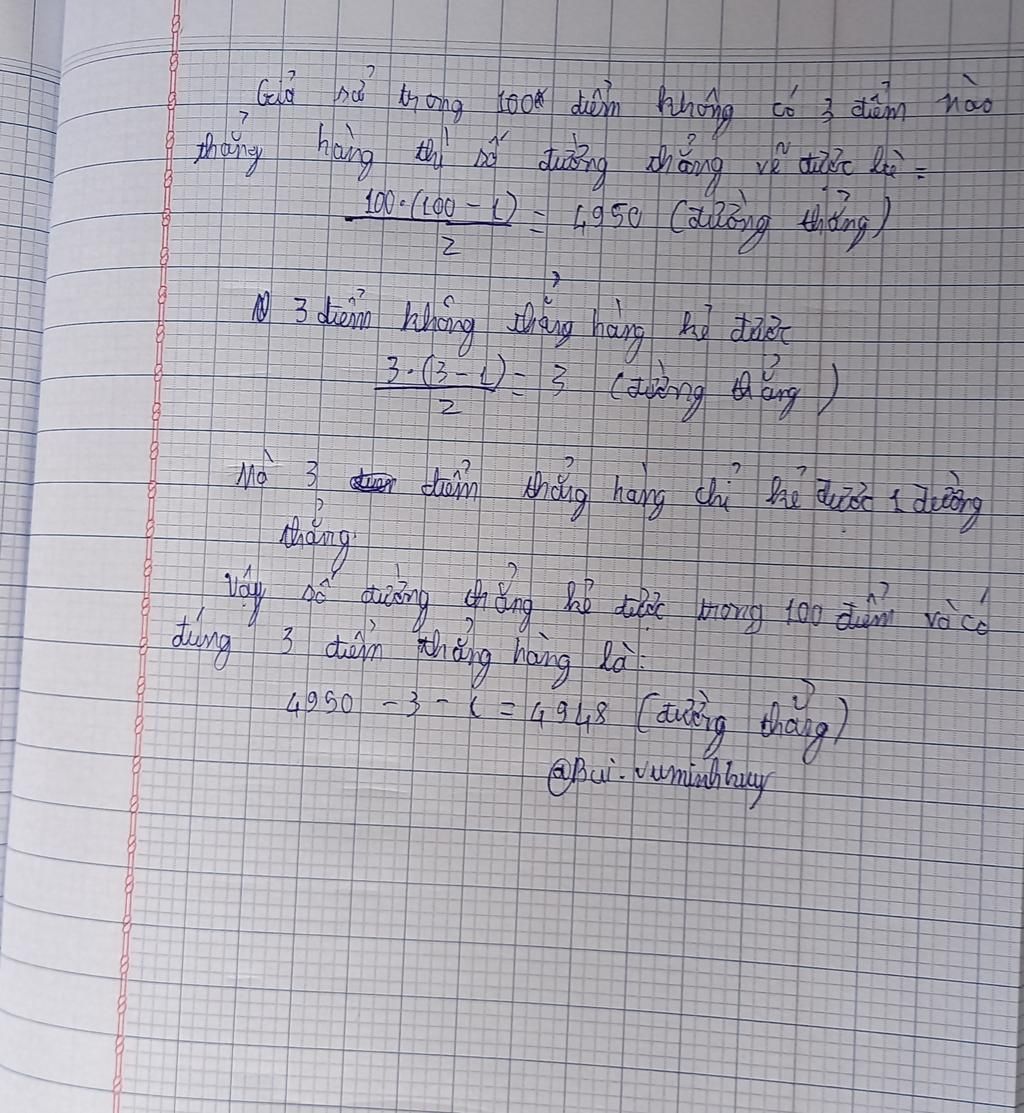 Giả sử trong 100 điểm không có 3 điểm nào
thẳng hàng thì số đường thẳng vẽ được là =
100.(100-1)/2 = 4950 (đường thẳng)
3 điểm không thẳng hàng kẻ được
3.(3-1)/2 = 3 (đường thẳng)
Mà 3 điểm thẳng hàng chỉ kẻ được 1 đường
thẳng
Vậy số đường thẳng kẻ được trong 100 điểm và có
đúng 3 điểm thẳng hàng là:
4950 - 3 - 1 = 4948 (đường thẳng)
@Bui.vuminhhuy